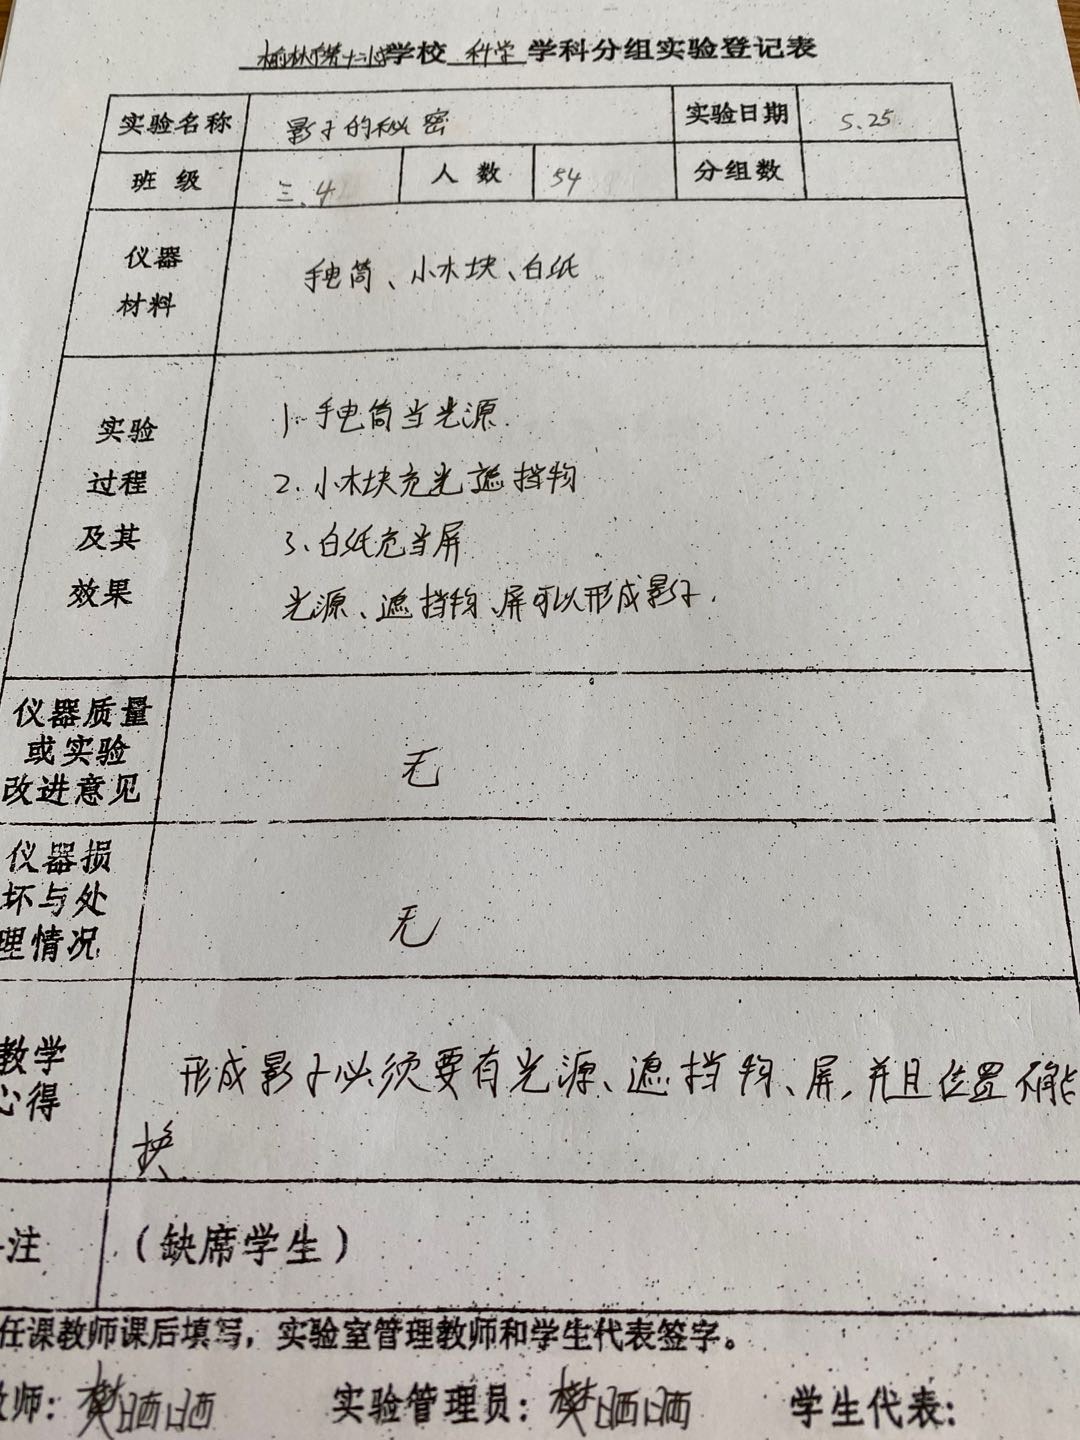 榆林市第十二小学校 科学 学科分组实验登记表
实验名称 影子的秘密 实验日期 5.25
班级 三.4 人数 54 分组数
仪器
材料
手电筒、小木块、白纸
实验
过程
及其
效果
1. 手电筒当光源.
2. 小木块充光遮挡物
3、白纸充当屏
光源、遮挡物、屏可以形成影子.
仪器质量
或实验
改进意见
无
仪器损
坏与处
理情况
无
教学
心得
形成影子必须要有光源、遮挡物、屏,并且位置不能
换.
注 (缺席学生)
任课教师课后填写，实验室管理教师和学生代表签字。
师: 樊晒晒 实验管理员: 樊晒晒 学生代表: